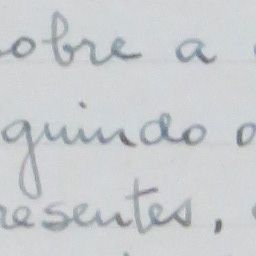 obre a
guindo o
resentes,